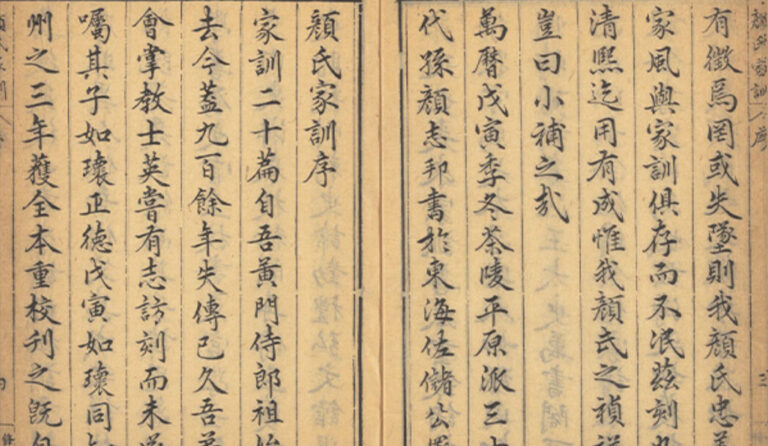 有徵焉罔或失墜則我顏氏忠
家風與家訓俱存而不泯茲刻
清熙迄用有成惟我顏氏之禎
豈曰小補之㢤
萬曆戊寅季冬茶陵平原派三
代孫顏志邦書於東海佐儲公
顏氏家訓序
家訓二十篇自吾黃門侍郎祖始
去今蓋九百餘年失傳已久吾
會掌教士英嘗有志訪刻而未
囑其子如瓌正德戊寅如瓌同
州之三年獲全本重校刊之旣